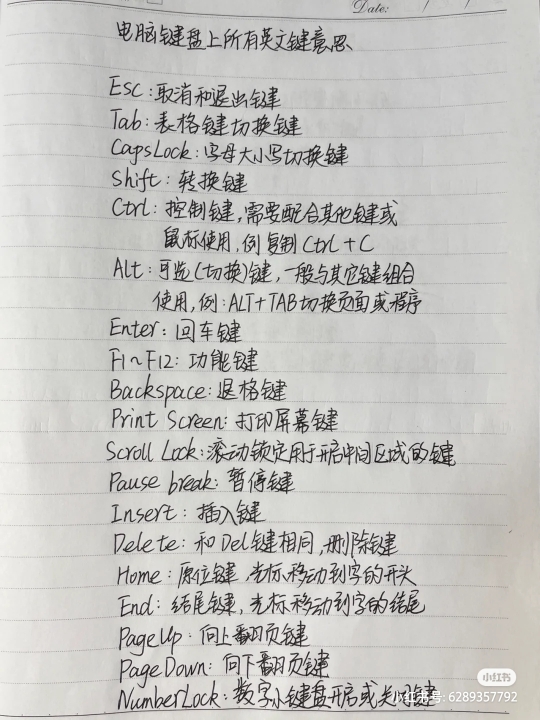 Date: / /
电脑键盘上所有英文键意思
Esc:取消和退出键
Tab:表格键切换键
CapsLock:字母大小写切换键
Shift:转换键
Ctrl:控制键,需要配合其他键或
鼠标使用,例复制Ctrl+C
Alt:可选(切换)键,一般与其它键组合
使用,例:ALT+TAB切换页面或程序
Enter:回车键
F1~F12:功能键
Backspace:退格键
Print Screen:打印屏幕键
Scroll Lock:滚动锁定用于开启中间区域的键
Pause break:暂停键
Insert:插入键
Delete:和Del键相同,删除键
Home:原位键,光标移动到字的开头
End:结尾键,光标移动到字的结尾
PageUp:向上翻页键
PageDown:向下翻页键
NumberLock:数字小键盘开启或关闭键
小红书
小红书号:6289357792